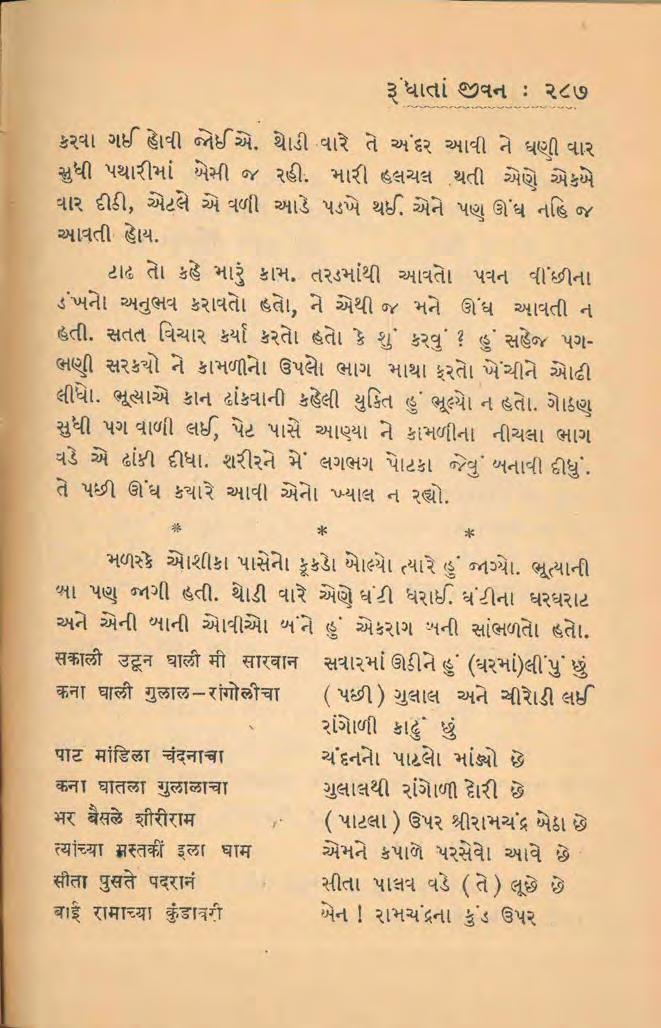 રૂંધાતાં જીવન : ૨૮૭
કરવા ગઈ હોવી જોઈએ. થોડી વારે તે અંદર આવી ને ઘણી વાર
સુધી પથારીમાં બેસી જ રહી. મારી હલચલ થતી એણે એકબે
વાર દીઠી, એટલે એ વળી આડે પડખે થઈ. એને પણ ઊંઘ નહિ જ
આવતી હોય.
ટાઢ તો કહે મારું કામ. તરડમાંથી આવતો પવન વીંછીના
ડંખનો અનુભવ કરાવતો હતો, ને એથી જ મને ઊંઘ આવતી ન
હતી. સતત વિચાર કર્યા કરતો હતો કે શું કરવું ? હું સહેજ પગ-
ભણી સરક્યો ને કામળીનો ઉપલો ભાગ માથા ફરતો ખેંચીને ઓઢી
લીધો. ભૂત્યાએ કાન ઢાંકવાની કહેલી યુક્તિ હું ભૂલ્યો ન હતો. ગોઠણ
સુધી પગ વાળી લઈ, પેટ પાસે આણ્યા ને કામળીના નીચલા ભાગ
વડે એ ઢાંકી દીધા. શરીરને મેં લગભગ પોટકા જેવું બનાવી દીધું.
તે પછી ઊંઘ ક્યારે આવી એનો ખ્યાલ ન રહ્યો.
* * *
મળસ્કે ઓશીકા પાસેનો કૂકડો બોલ્યો ત્યારે હું જાગ્યો. ભૂત્યાની
બા પણ જાગી હતી. થોડી વારે એણે ઘંટી ધરાઈ. ઘંટીના ઘરઘરાટ
અને એની બાની ઓવીઓ બંને હું એકરાગ બની સાંભળતો હતો.
सकाली उटून घाली मी सारवान સવારમાં ઊઠીને હું (ઘરમાં)લીંપું છું
कना घाली गुलाल–रांगोलीचा ( પછી ) ગુલાલ અને ચીરોડી લઈ
રાંગોળી કાઢું છું
पाट मांडिला चंदनाचा ચંદનનો પાટલો માંડ્યો છે
कना घातला गुलालाचा ગુલાલથી રાંગોળી દોરી છે
भर बैसले शीरीराम ( પાટલા ) ઉપર શ્રીરામચંદ્ર બેઠા છે
त्यांच्या मस्तकीं इला घाम એમને કપાળે પરસેવો આવે છે
सीता पुसते पदरानं સીતા પાલવ વડે ( તે ) લૂછે છે
बाई रामाच्या कुंडावरी બેન ! રામચંદ્રના કુંડ ઉપર